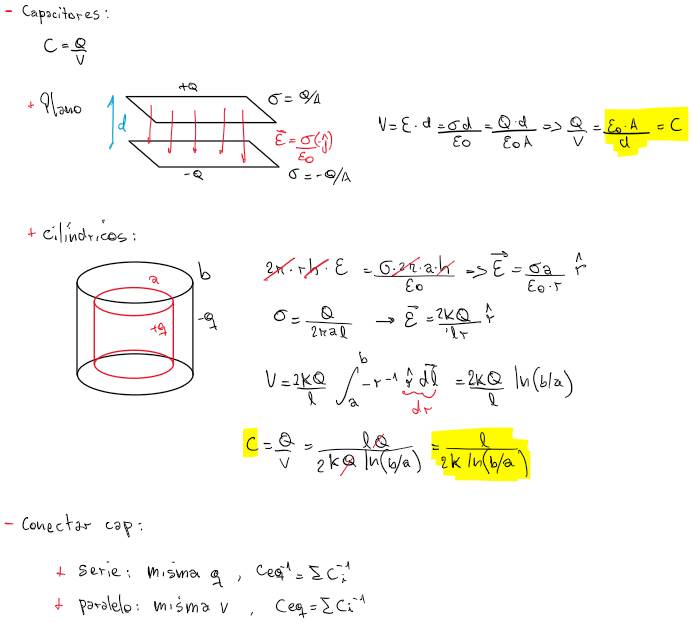 - Capacitores:
C = Q/V
+ Plano
+Q
σ = Q/A
d
E⃗ = σ/ε₀ (-ĵ)
-Q
σ = -Q/A
V = E·d = σd/ε₀ = Q·d/ε₀A => Q/V = ε₀·A/d = C
+ cilíndricos:
a
b
+q
-q
2π·rh·E = σ·2π·a·h/ε₀ => E⃗ = σa/ε₀·r r̂
σ = Q/2πal → E⃗ = 2kQ/lr r̂
V = 2kQ/l ∫ₐᵇ -r⁻¹ r̂ dl⃗ = 2kQ/l ln(b/a)
dr
C = Q/V = lQ/2kQ ln(b/a) = l/2k ln(b/a)
- Conectar cap:
+ serie: misma q, Ceq⁻¹ = ΣCi⁻¹
+ paralelo: misma v, Ceq = ΣCi⁻¹